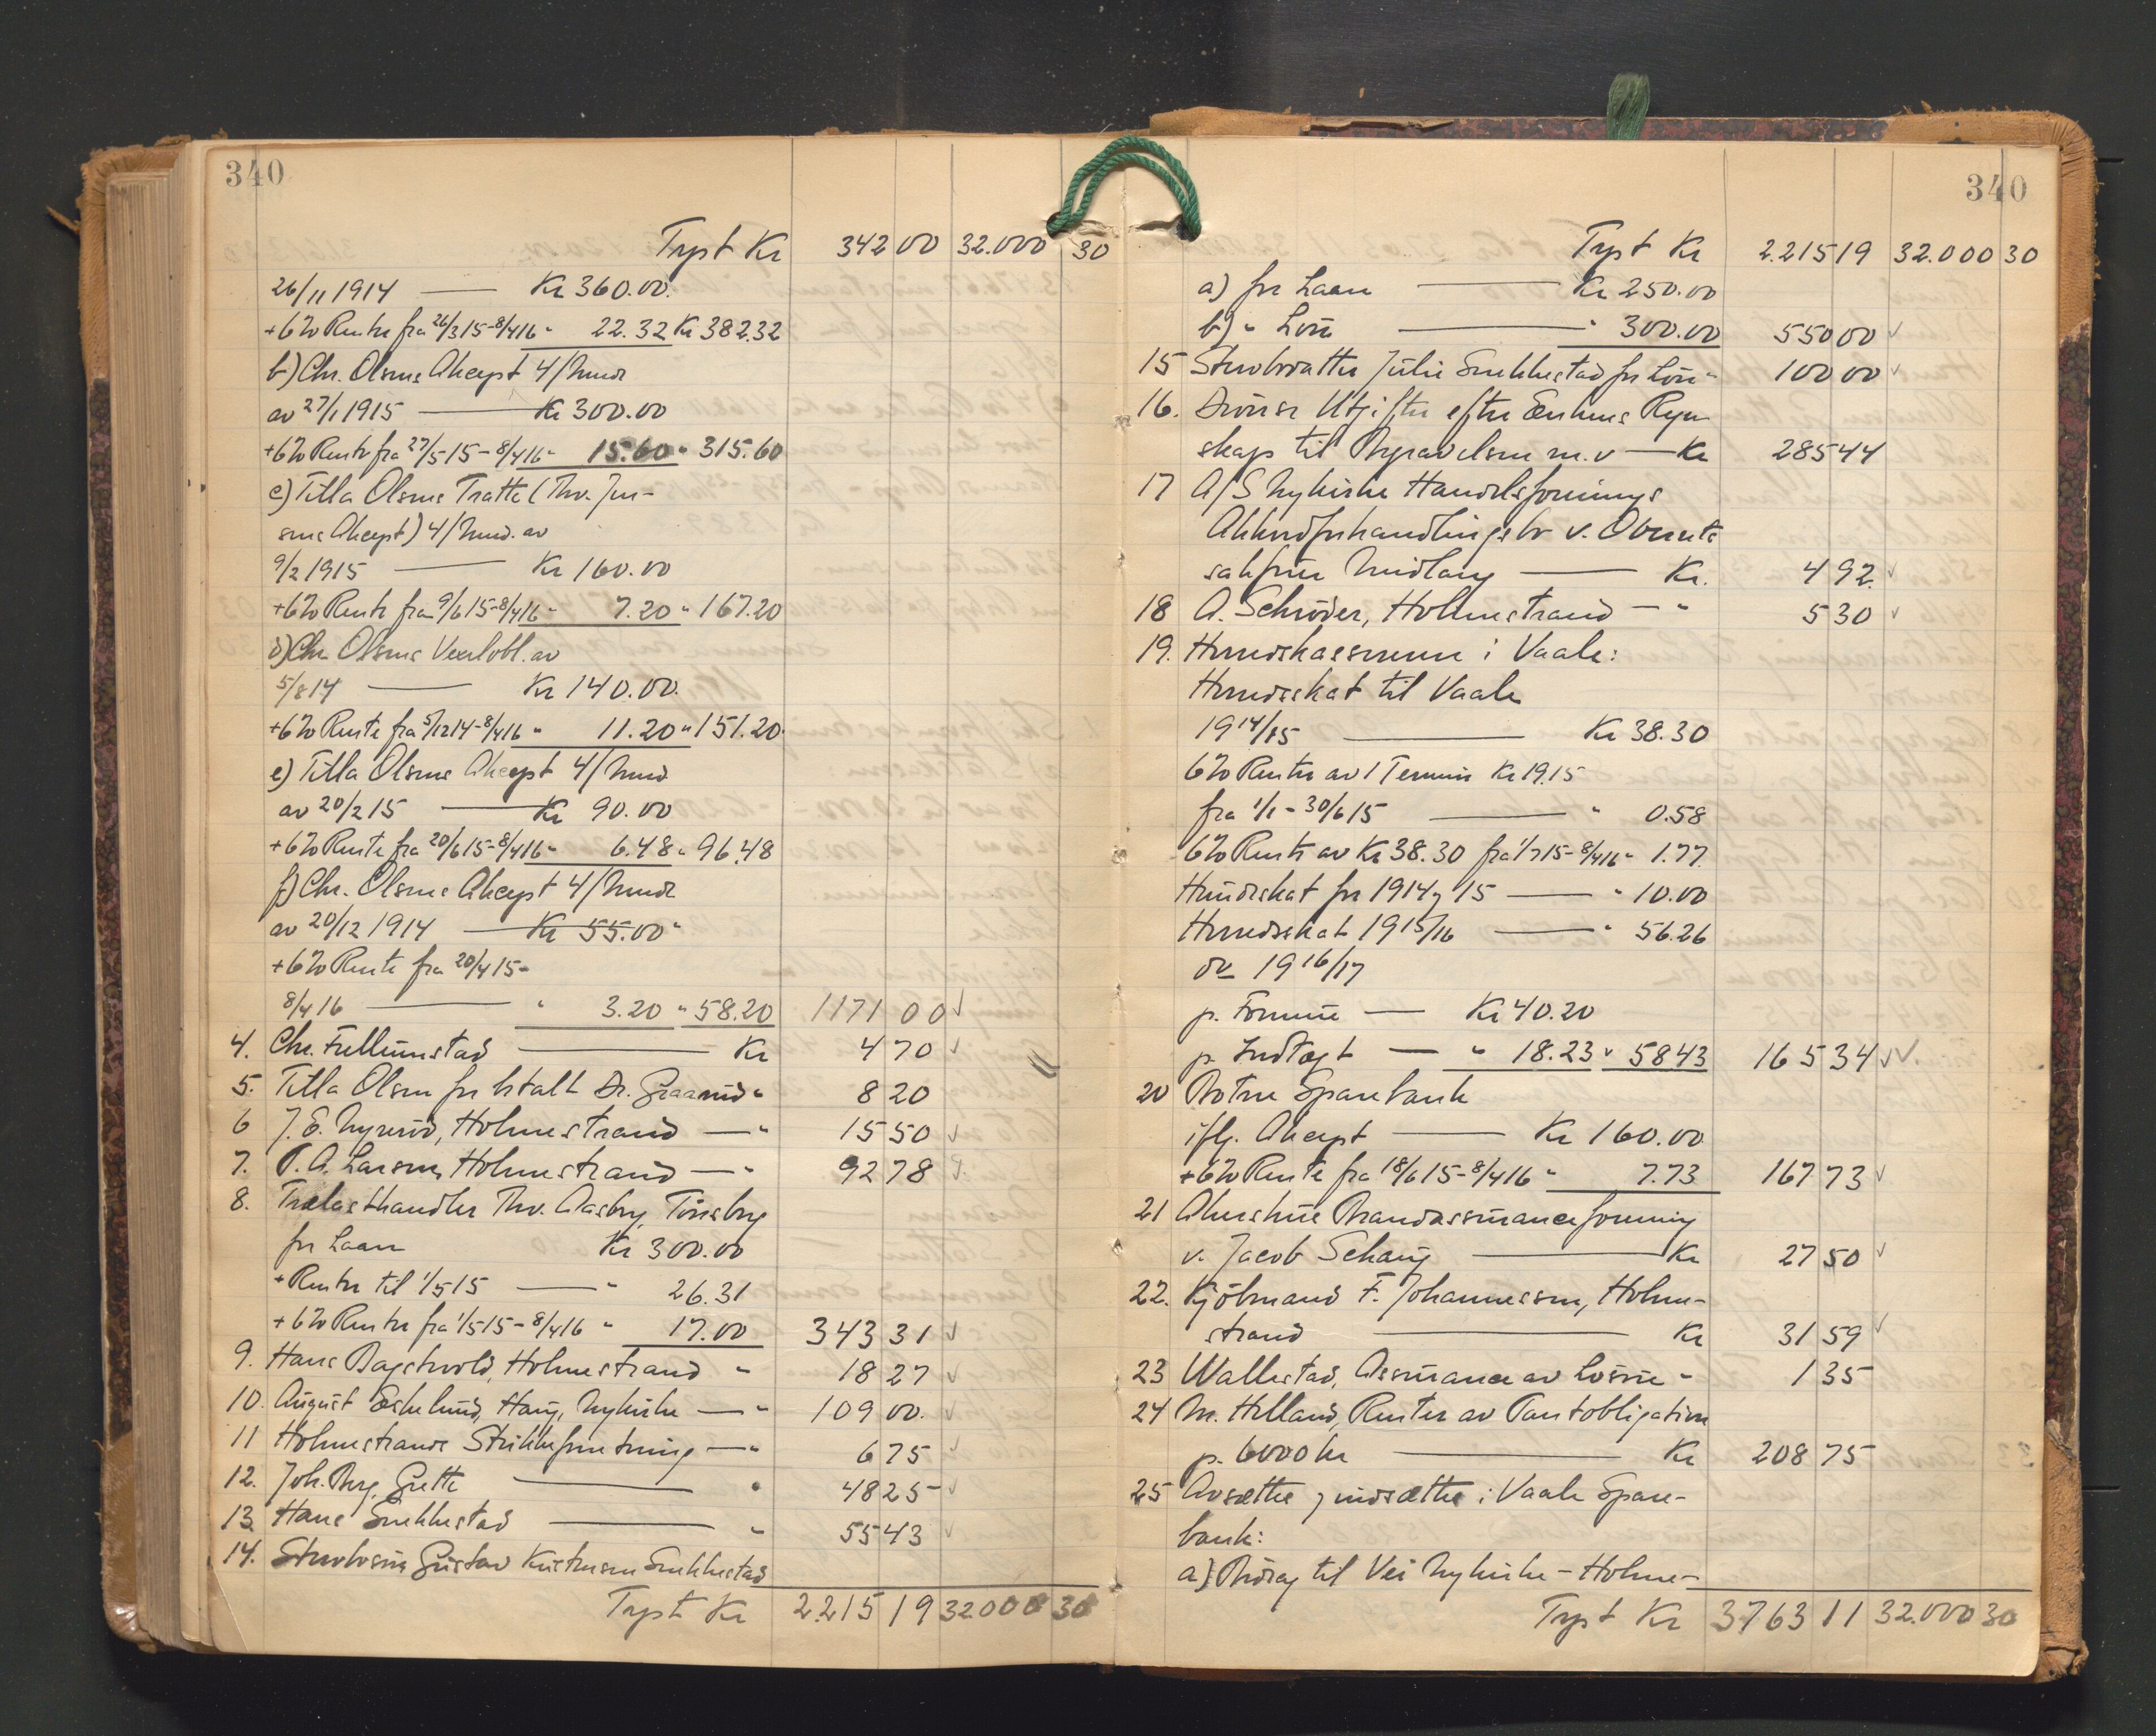 340
Trpst Kr 342 00 32.000 30
26/11 1914 — Kr 360.00.
+6% Rente fra 26/3 15-8/4 16 " 22.32 Kr 382.32
b) Chr. Olsens Akcept 4/Mndr
av 27/1 1915 — Kr 300.00
+6% Rente fra 27/5 15-8/4 16 " 15.60 " 315.60
c) Tilla Olsens Tratte (Thv. Jen-
sens Akcept) 4/Mnd. av
9/2 1915 — Kr 160.00
+6% Rente fra 9/6 15-8/4 16 " 7.20 " 167.20
d) Chr. Olsens Vexelobl. av
5/8 14 — Kr 140.00.
+6% Rente fra 5/12 14-8/4 16 " 11.20 " 151.20
e) Tilla Olsens Akcept 4/Mnd
av 20/2 15 — Kr 90.00
+6% Rente fra 20/6 15-8/4 16 " 6.48 " 96.48
f) Chr. Olsens Akcept 4/Mndr
av 20/12 1914 — Kr 55.00 "
+6% Rente fra 20/4 15-
8/4 16 — " 3.20 " 58.20 1171 00
4. Chr. Fullumstad — Kr 4 70
5. Tilla Olsen for betalt Dr. Graarud " 8 20
6 J. E. Nyrerød, Holmestrand — " 15 50
7. P. A. Larsen, Holmestrand — " 92 78
8. Trælasthandler Thv. Aasbry, Tønsbrg
for Laan Kr 300.00
+ Renter til 1/5 15 — " 26.31
+6% Renter fra 1/5 15-8/4 16 " 17.00 343 31
9. Hans Bagstevold, Holmestrand " 18 27
10. August Eskelund, Haug, Nykirke — " 109 00.
11 Holmestrands Strikkeforretning — " 6 75
12. Joh. Berg, Grette — " 48 25
13. Hans Snekkestad — " 55 43
14. Stervbosøn Gustav Kristensen Snekkestad
Trpst Kr 2.215 19 32000 30
340
Trpst Kr 2.215 19 32.000 30
a) for Laan — Kr 250.00
b) " Løn — " 300.00 550 00
15 Stervbodatter Julie Snekkestad for Løn " 100 00
16. Diverse Utgifter efter Enkens Regn-
skap til Begravelsen m.v — Kr 285 44
17 A/S Nykirke Handelsforenings
Akkordforhandlingsbo v. Overrets
sakfører Midling — Kr. 4 92
18 A. Schrøder, Holmestrand — " 5 30
19. Herredskassereren i Vaale:
Herredsskat til Vaale
1914/15 — Kr 38.30
6% Renter av 1 Termin Kr 19.15
fra 1/1 - 30/6 15 — " 0.58
6% Rente av Kr 38.30 fra 1/7 15-8/4 16 " 1.77.
Hundeskat for 1914 og 15 — " 10.00
Herredsskat 1915/16 — " 56.26
do 1916/17
p. Formue — Kr 40.20
p. Indtægt — " 18.23 " 58 43 165 34
20 Botne Sparebank
iflg. Akcept — Kr 160.00
+6% Rente fra 18/6 15-8/4 16 " 7.73 167 73
21 Akershus Brandassuranceforening
v. Jacob Schang — Kr 27 50
22. Kjøbmand F. Johannessen, Holme-
strand — Kr 31 59
23 Wallestad, Assurance av Løsøre " 1 35
24 M. Helland, Renter av Pantobligation
p. 6000 kr — Kr 208 75
25 Avsættes og indsættes i Vaale Spare-
bank:
a) Bidrag til Vei Nykirke - Holme-
Trpst Kr 3763 11 32.000 30